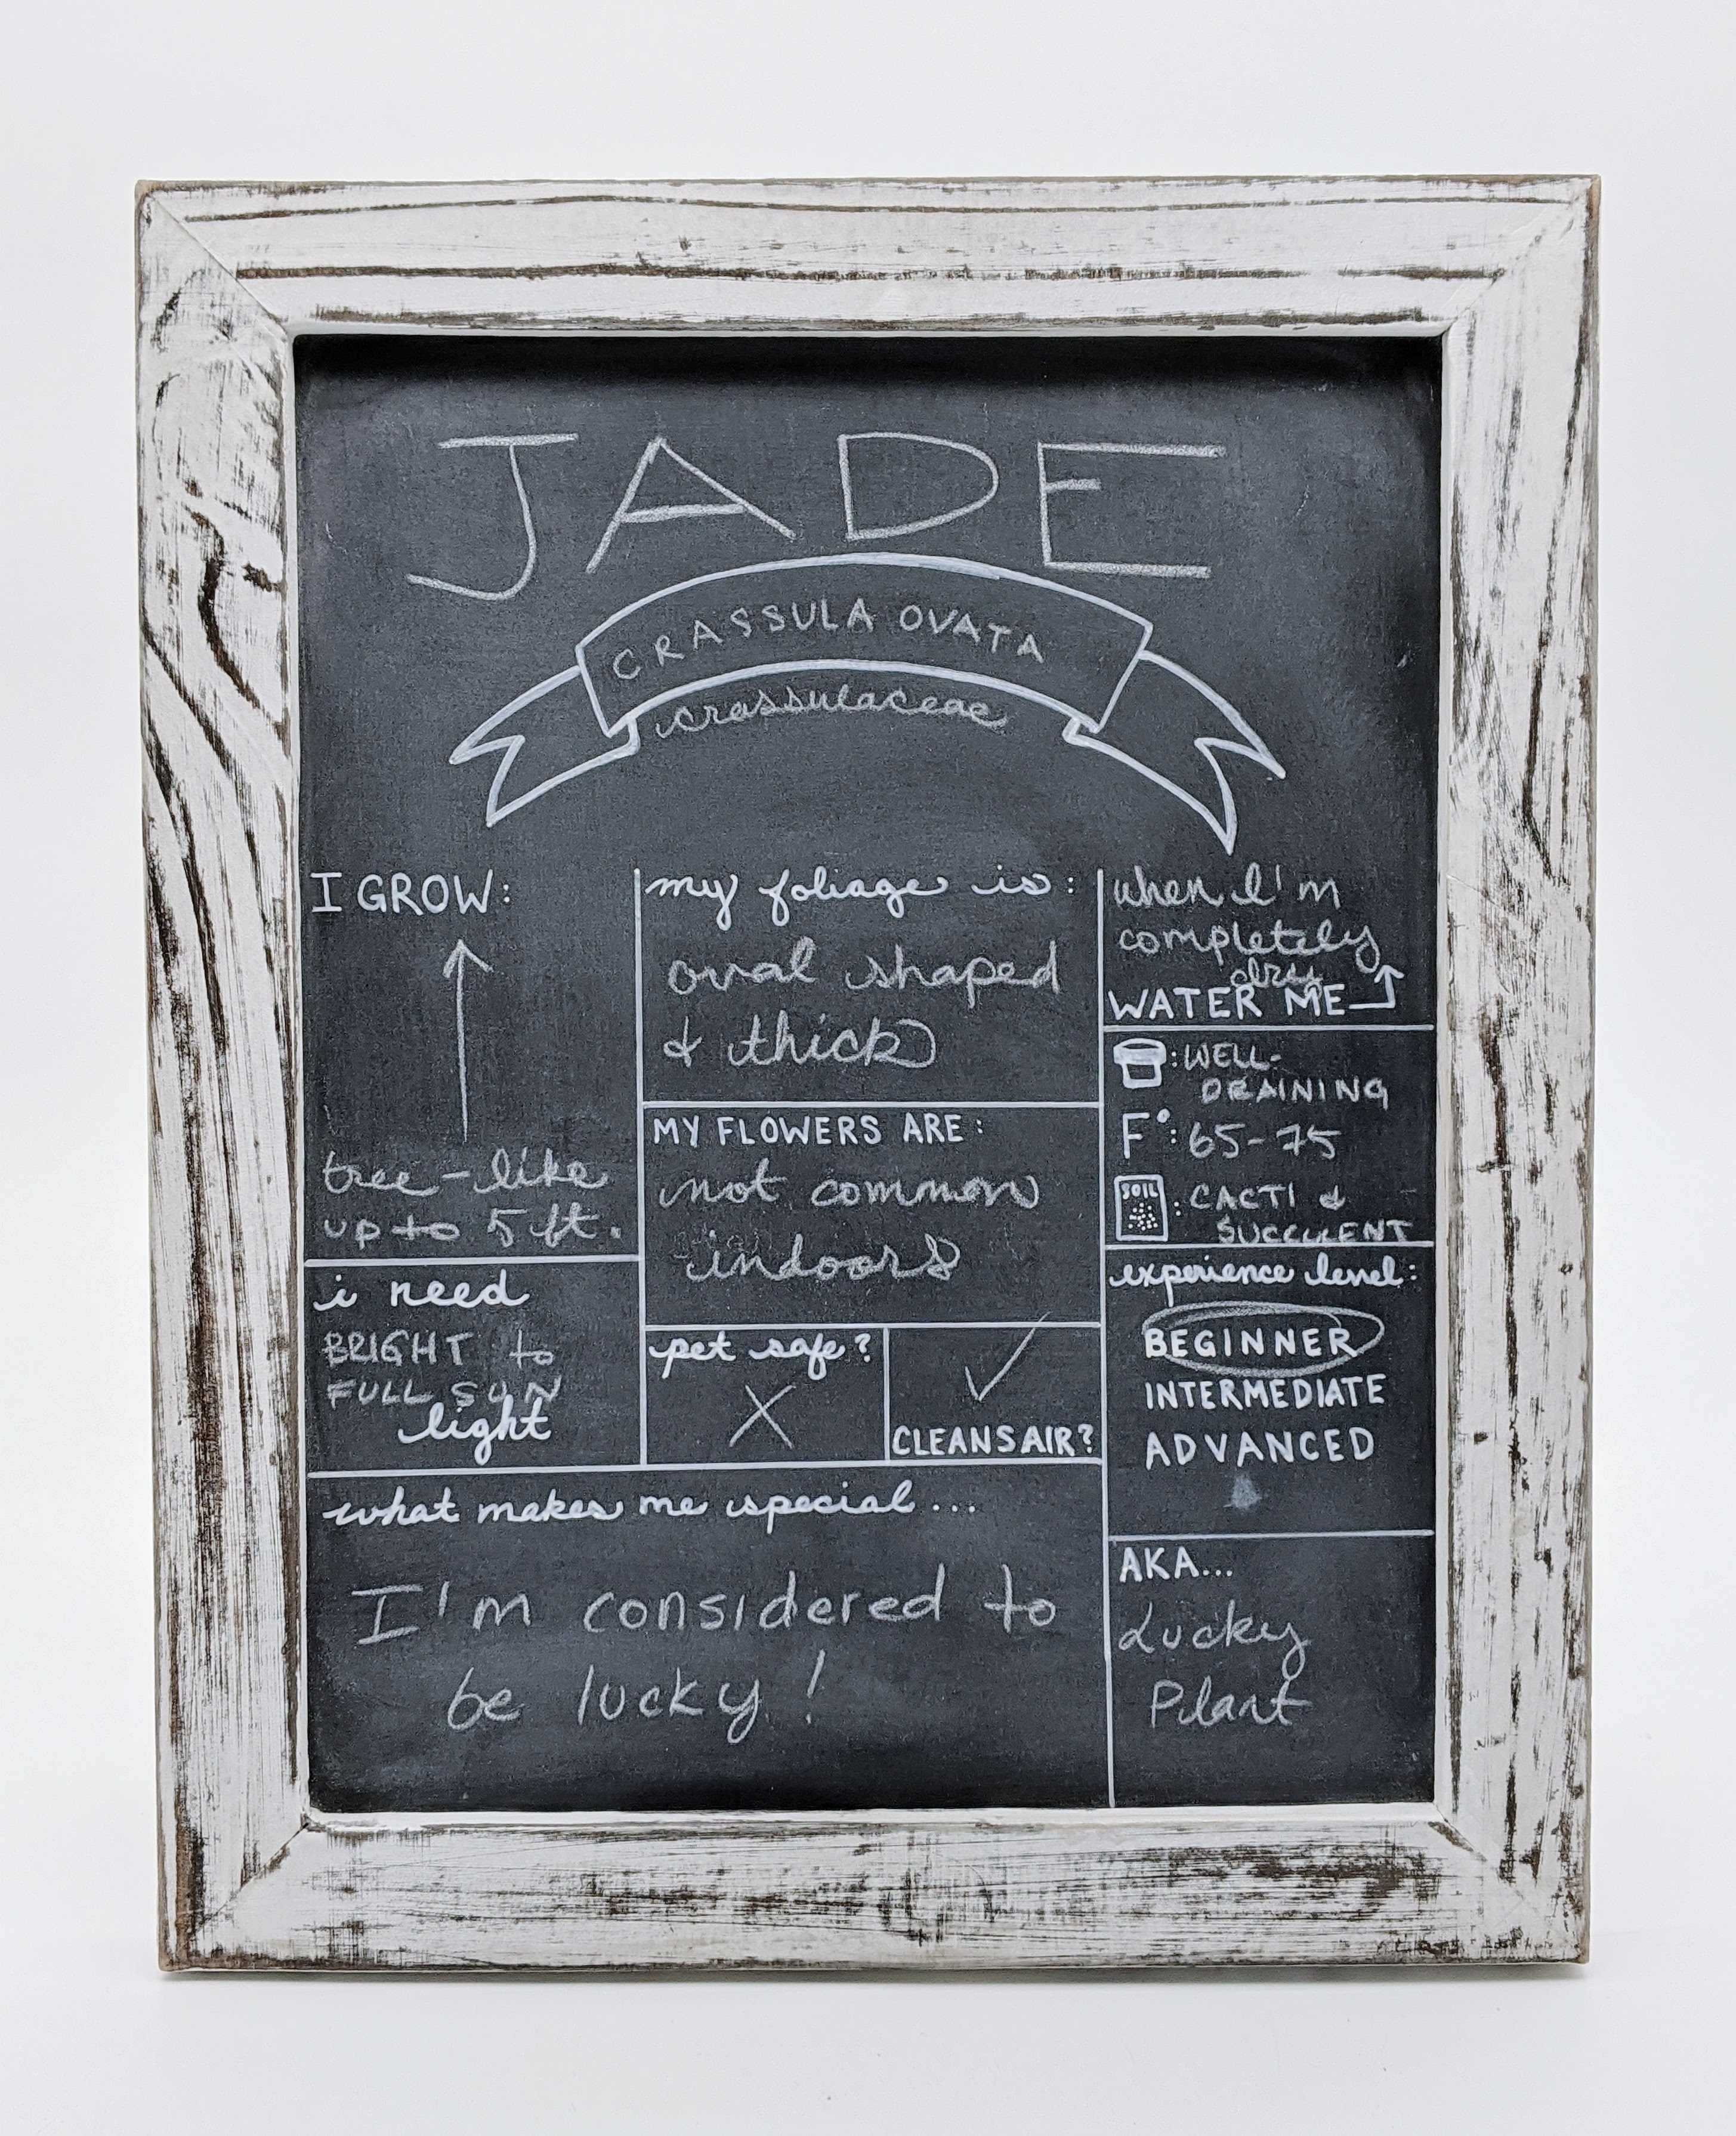 JADE
CRASSULA OVATA
crassulaceae
I GROW:
tree-like
up to 5 ft.
i need
BRIGHT to
FULL SUN
light
my foliage is:
oval shaped
& thick
MY FLOWERS ARE:
not common
indoors
pet safe?
X
✓
CLEANS AIR?
what makes me special...
I'm considered to
be lucky!
when I'm
completely
dry
WATER ME
: WELL-
DRAINING
F°: 65-75
SOIL : CACTI &
SUCCULENT
experience level:
BEGINNER
INTERMEDIATE
ADVANCED
AKA...
Lucky
Plant